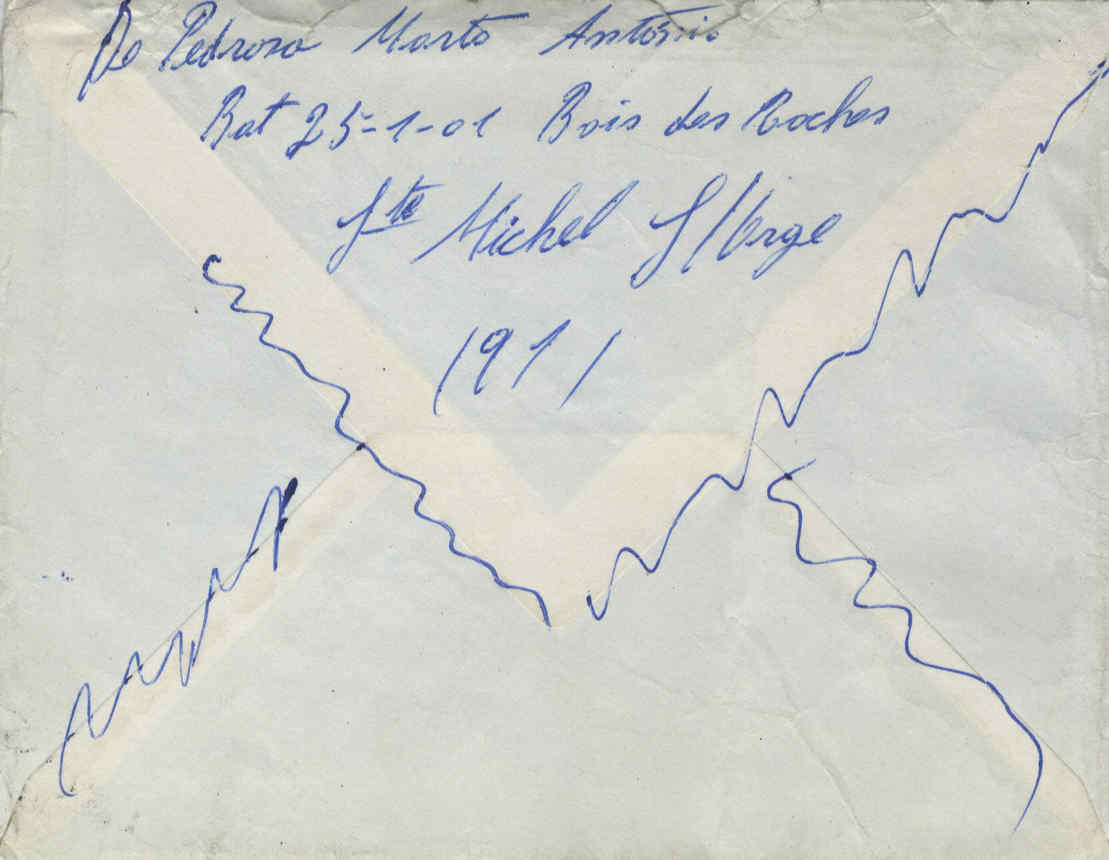 De Pedrosa Marto António
Bat 25-1-01 Bois des Roches
Ste Michel S/Orge
1911